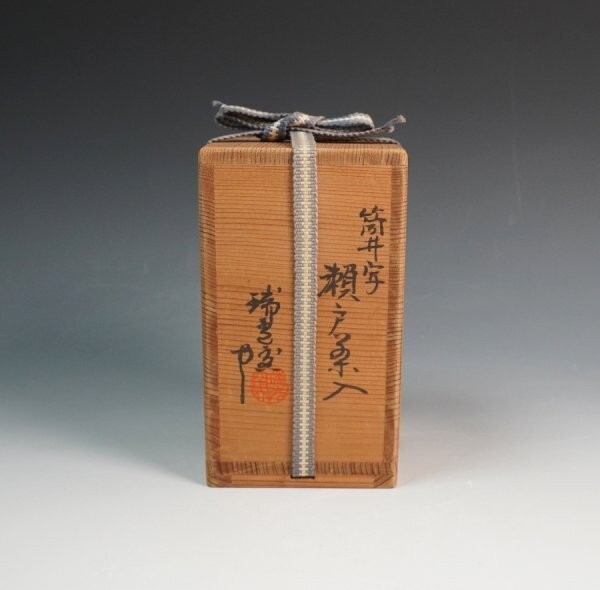 筒井写
瀬戸茶入
瑞春窯